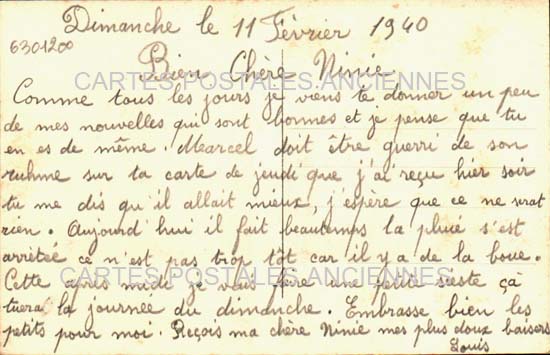 Dimanche le 11 Février 1940
6301200
Bien Chère Ninie
CARTES POSTALES ANCIENNES
Comme tous les jours je viens te donner un peu
de mes nouvelles qui sont bonnes et je pense que tu
en es de même. Marcel doit être guerri de son
ruhme sur ta carte de jeudi que j'ai reçu hier soir
tu me dis qu'il allait mieux, j'espère que ce ne srat
rien. Aujourd'hui il fait beautemps la pluie s'est
arrêteé ce n'est pas trop tôt car il y a de la boue.
CARTES POSTALES ANCIENNES
Cette après midi je vais faire une petite sieste çà
tuera la journée du dimanche. Embrasse bien les
petits pour moi. Reçois ma chère Ninie mes plus doux baisers
Louis